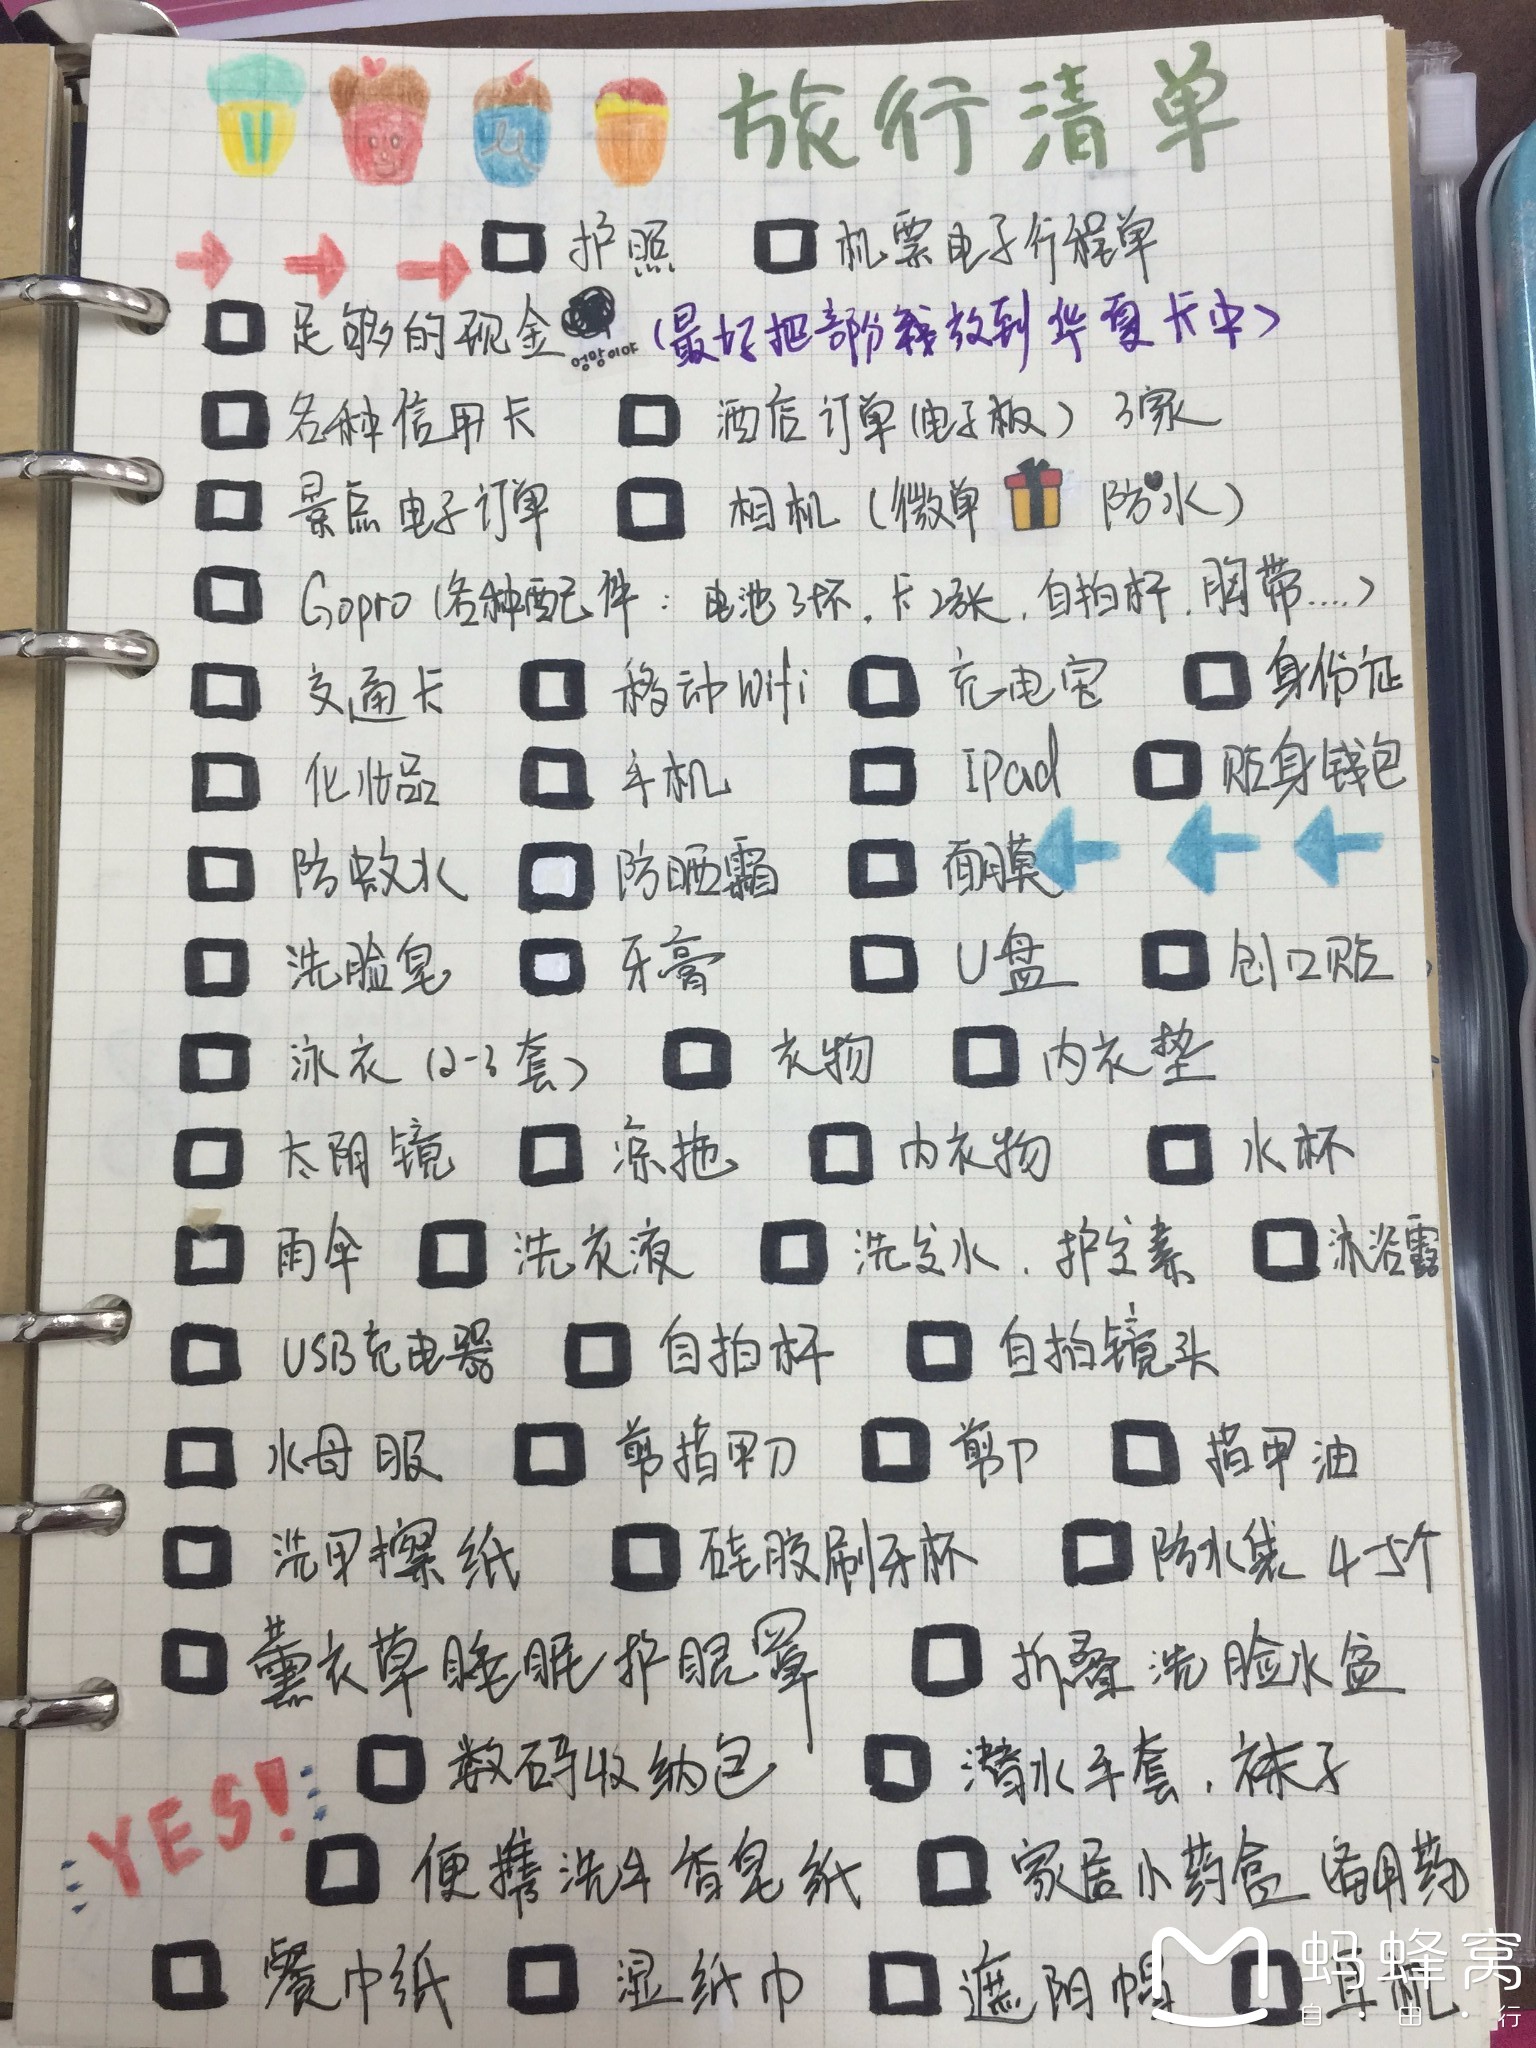 旅行清单
护照 机票电子行程单
足够的现金 엉망이야 (最好把部分钱放到华夏卡中)
各种信用卡 酒店订单(电子板) 3家
景点电子订单 相机(微单 防水)
Gopro(各种配件: 电池3坏, 卡2张, 自拍杆, 胸带....)
交通卡 移动Wifi 充电宝 身份证
化妆品 手机 IPad 贴身钱包
防蚊水 防晒霜 面膜
洗脸皂 牙膏 U盘 创口贴
泳衣(2-3套) 衣物 内衣垫
太阳镜 凉拖 内衣物 水杯
雨伞 洗衣液 洗发水, 护发素 沐浴露
USB充电器 自拍杆 自拍镜头
水母服 剪指甲刀 剪刀 指甲油
洗甲擦纸 硅胶刷牙杯 防水袋 4-5个
薰衣草睡眠护眼罩 折叠洗脸水盆
数码收纳包 潜水手套, 袜子
YES!
便携洗手香皂纸 家居小药盒(备用药)
餐巾纸 湿纸巾 遮阳帽 耳机
蚂蜂窝
自·由·行